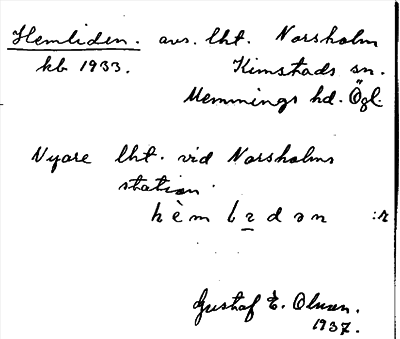 Hemliden. avs. lht. Norsholm
kb 1933. Kimstads sn.
Memmings hd. Ögl.
Nyare lht. vid Norsholms
station.
:r
Gustaf E. Olsson.
1937.